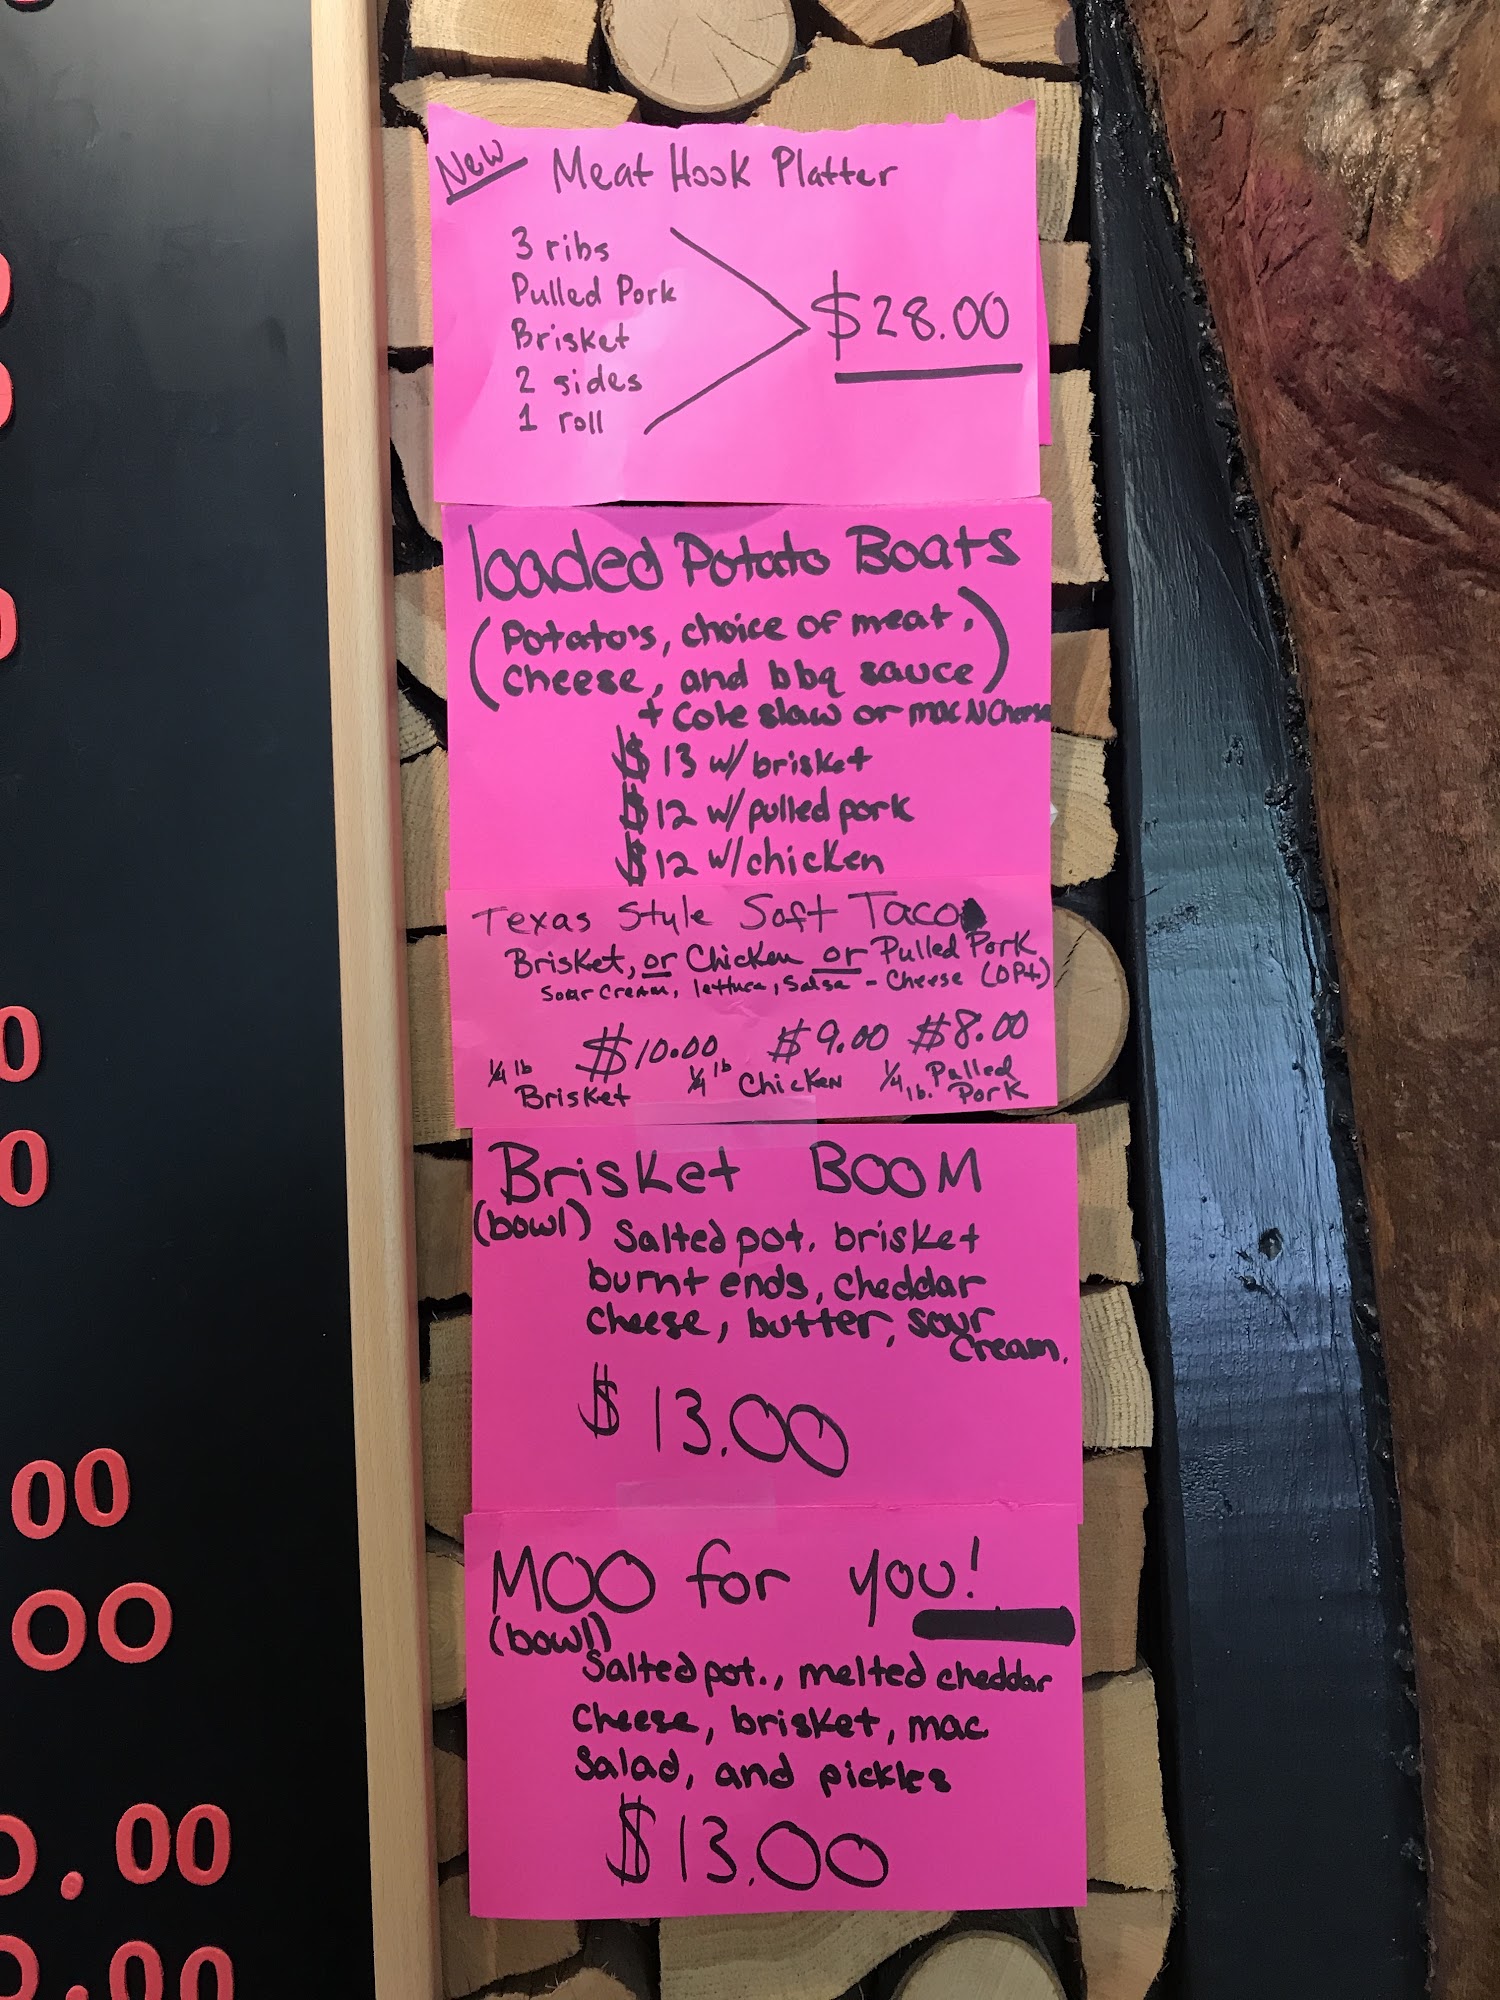 New Meat Hook Platter
3 ribs
Pulled Pork
Brisket
2 sides
1 roll
$28.00
loaded Potato Boats
(Potato's, choice of meat,
cheese, and bbq sauce)
+ Cole slaw or mac N Cheese
$13 w/ brisket
$12 w/ pulled pork
$12 w/ chicken
Texas Style Soft Taco
Brisket, or Chicken or Pulled Pork
Sour Cream, lettuce, Salsa - Cheese (OPt)
$10.00 $9.00 $8.00
1/4 lb Brisket 1/4 lb Chicken 1/4 lb. Pulled Pork
Brisket BOOM
(bowl) Salted pot. brisket
burnt ends, cheddar
cheese, butter, sour
cream.
$13.00
MOO for you!
(bowl)
Salted pot., melted cheddar
cheese, brisket, mac
Salad, and pickles
$13.00
0
0
0
0
0
00
00
0.00
0.00